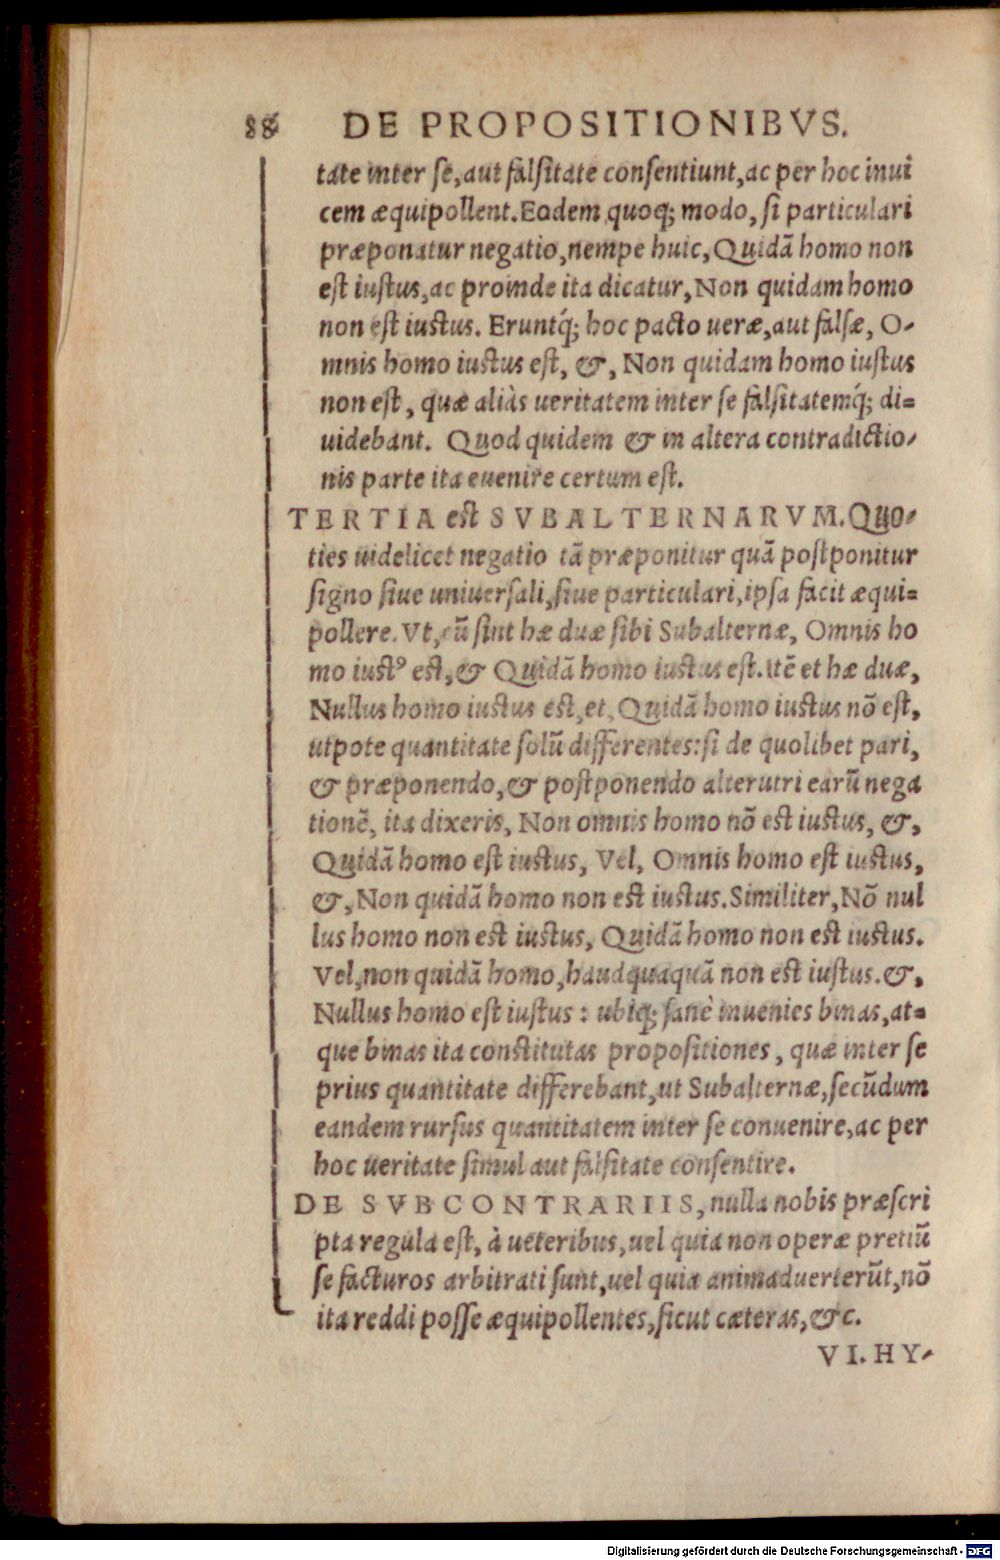 88 DE PROPOSITIONIBVS.
tate inter ſe, aut falſitate conſentiunt, ac per hoc inui
cem æquipollent. Eodem quoq; modo, ſi particulari
præponatur negatio, nempe huic, Quidã homo non
eſt iuſtus, ac proinde ita dicatur, Non quidam homo
non eſt iuctus. Eruntq́; hoc pacto ueræ, aut falſæ, O-
mnis homo iuctus eſt, &, Non quidam homo iuſtus
non eſt, quæ aliàs ueritatem inter ſe falſitatemq́; di=
uidebant. Quod quidem & in altera contradictio-
nis parte ita euenire certum eſt.
TERTIA eſt SVBALTERNARVM. Quo-
ties uidelicet negatio tã præponitur quã poſtponitur
ſigno ſiue uniuerſali, ſiue particulari, ipſa facit æqui=
pollere. Vt, cũ ſint hæ duæ ſibi Subalternæ, Omnis ho
mo iuſtꝰ eſt, & Quidã homo iuſtus eſt. Itẽ et hæ duæ,
Nullus homo iuctus eſt, et, Quidã homo iuctus nõ eſt,
utpote quantitate ſolũ differentes: ſi de quolibet pari,
& præponendo, & poſtponendo alterutri earũ nega
tionẽ, ita dixeris, Non omnis homo nõ eſt iuctus, &,
Quidã homo eſt iuctus, Vel, Omnis homo eſt iuctus,
&, Non quidã homo non eſt iuctus. Similiter, Nõ nul
lus homo non eſt iuctus, Quidã homo non eſt iuctus.
Vel, non quidã homo, haudquaquã non eſt iuſtus. &,
Nullus homo eſt iuſtus : ubiq; ſanè inuenies binas, at=
que binas ita conſtitutas propoſitiones, quæ inter ſe
prius quantitate differebant, ut Subalternæ, ſecũdum
eandem rurſus quantitatem inter ſe conuenire, ac per
hoc ueritate ſimul aut falſitate conſentire.
DE SVBCONTRARIIS, nulla nobis præſcri
pta regula eſt, à ueteribus, uel quia non operæ pretiũ
ſe facturos arbitrati ſunt, uel quia animaduerterũt, nõ
ita reddi poſſe æquipollentes, ſicut cæteras, &c.
VI. HY-
Digitalisierung gefördert durch die Deutsche Forschungsgemeinschaft - DFG